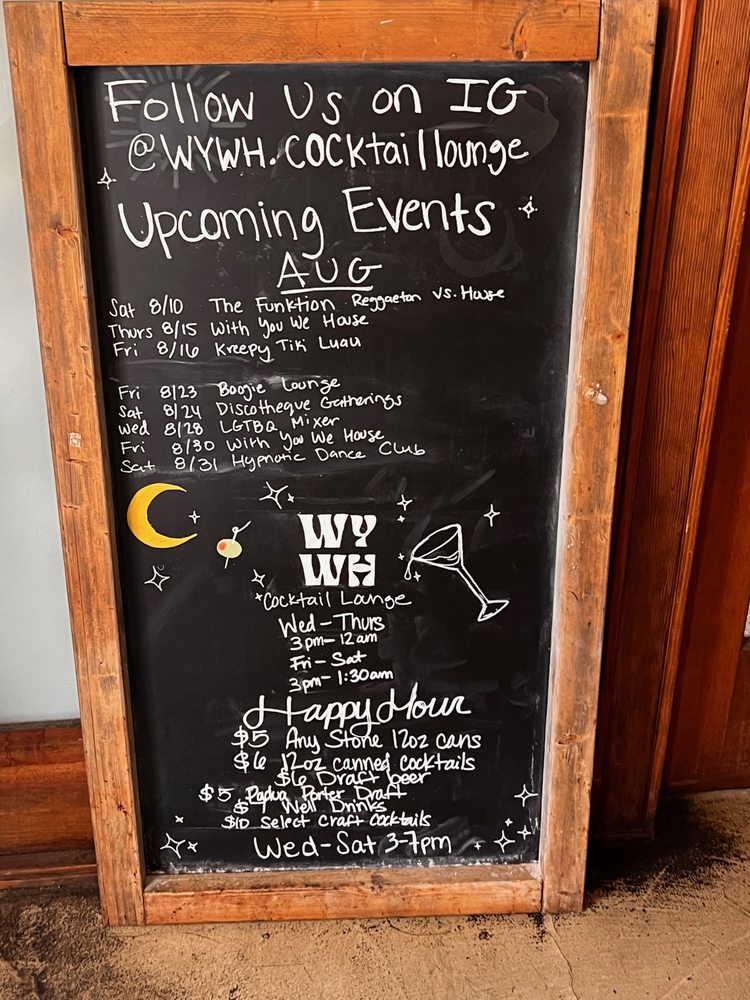 Follow Us on IG
@WYWH.COCKtaillounge
Upcoming Events
AUG
Sat 8/10 The Funktion Reggaeton vs. House
Thurs 8/15 With You We House
Fri 8/16 Kreepy Tiki Luau
Fri 8/23 Boogie Lounge
Sat 8/24 Discotheque Gatherings
Wed 8/28 LGTBQ Mixer
Fri 8/30 With You We House
Sat 8/31 Hypnotic Dance Club
WY
WH
Cocktail Lounge
Wed - Thurs
3pm - 12am
Fri - Sat
3pm - 1:30am
Happy Hour
$5 Any Stone 12oz cans
$6 12oz canned cocktails
$6 Draft beer
$5 Porter Draft
$ Well Drinks
$10 select craft cocktails
Wed - Sat 3-7pm